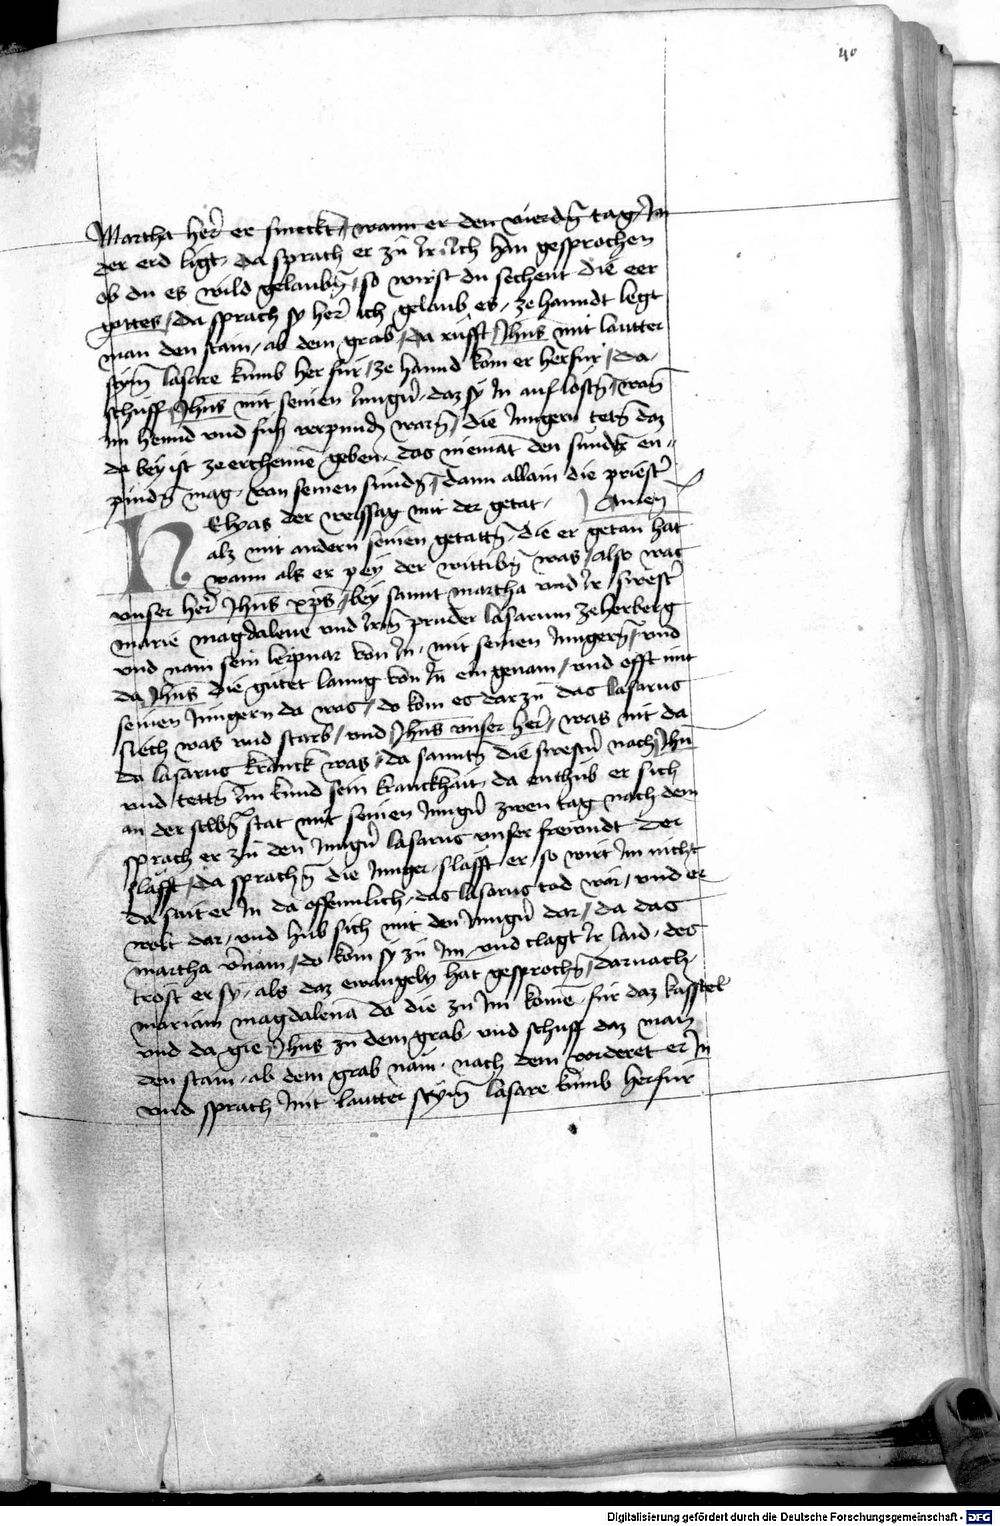 40
Martha her̄ er smeckt / wann er den vierdn̄ tag / In
der erd ligt · da sprach er zu Ir Ich han gesprochen
ob du es wild gelaubn̄ / so wirst du sechent die eer
gottes / da sprach sy her̄ ich gelaub es · ze hanndt legt
man den stain · ab dem grab / da rüfft Jhūs mit lautter
stym̄ lasare kumb her fur / ze hannd kom er herfur / da ·
schuff Jhūs mit seinen Jungn̄ · daz sy In auf lostn̄ / wan̄
im hennd und fuß verpundn̄ warn̄ / die Jungern tetn̄ daz
da bey ist ze erchennē geben · das niemāt den sunder en=
pindn̄ mag · von seinen sundn̄ / dann allain die priestr̄
Elyas der weissag mit der getat · Amen
alz mit andern seinen getattn̄ · die er getan hat
wann als er pey der wittibn̄ was / also was
unser her̄ Jhūs xp̄s / bey sannt martha und Ir swestr̄
marie magdalene und Irm̄ pruder lasarum ze herberg
und nam sein leipnar von In · mit seinen Jungern̄ / und
da Jhūs die gütet lanng von In ein genam / und offt mit
seinen Jungern da was / do kom es dar zu das lasarus
siech was und starb / und Jhūs unser her̄ / was nit da
da lasarus kranck was / da santn̄ die swestn̄ nach Jhū
und tettn̄ Im kund sein kranckhait · da enthub er sich
an der selbn̄ stat mit seinen Jungn̄ zwen tag nach dem
sprach er zu den Jungn̄ lasarus unser frewndt der
slafft / da sprachn̄ die Junger / slafft er / so wirt Im nicht
da sait er In da offennlich · das lasarus tod wär / und er
wolt dar · und hub sich mit den Jungn̄ dar / da das
martha v̄nam / do kom sy zu Im und clagt Ir laid · des
trost er sy · als daz ewangely hat gesprochn̄ / darnach ·
mariam magdalenā da die zu Im komē · für daz kasstel
und da gie Jhūs zu dem grab · und schuff daz man
den stain · ab dem grab nam · nach dem vorderet er In
und sprach mit lautter stym̄ lasare kumb herfur
Digitalisierung gefördert durch die Deutsche Forschungsgemeinschaft - DFG